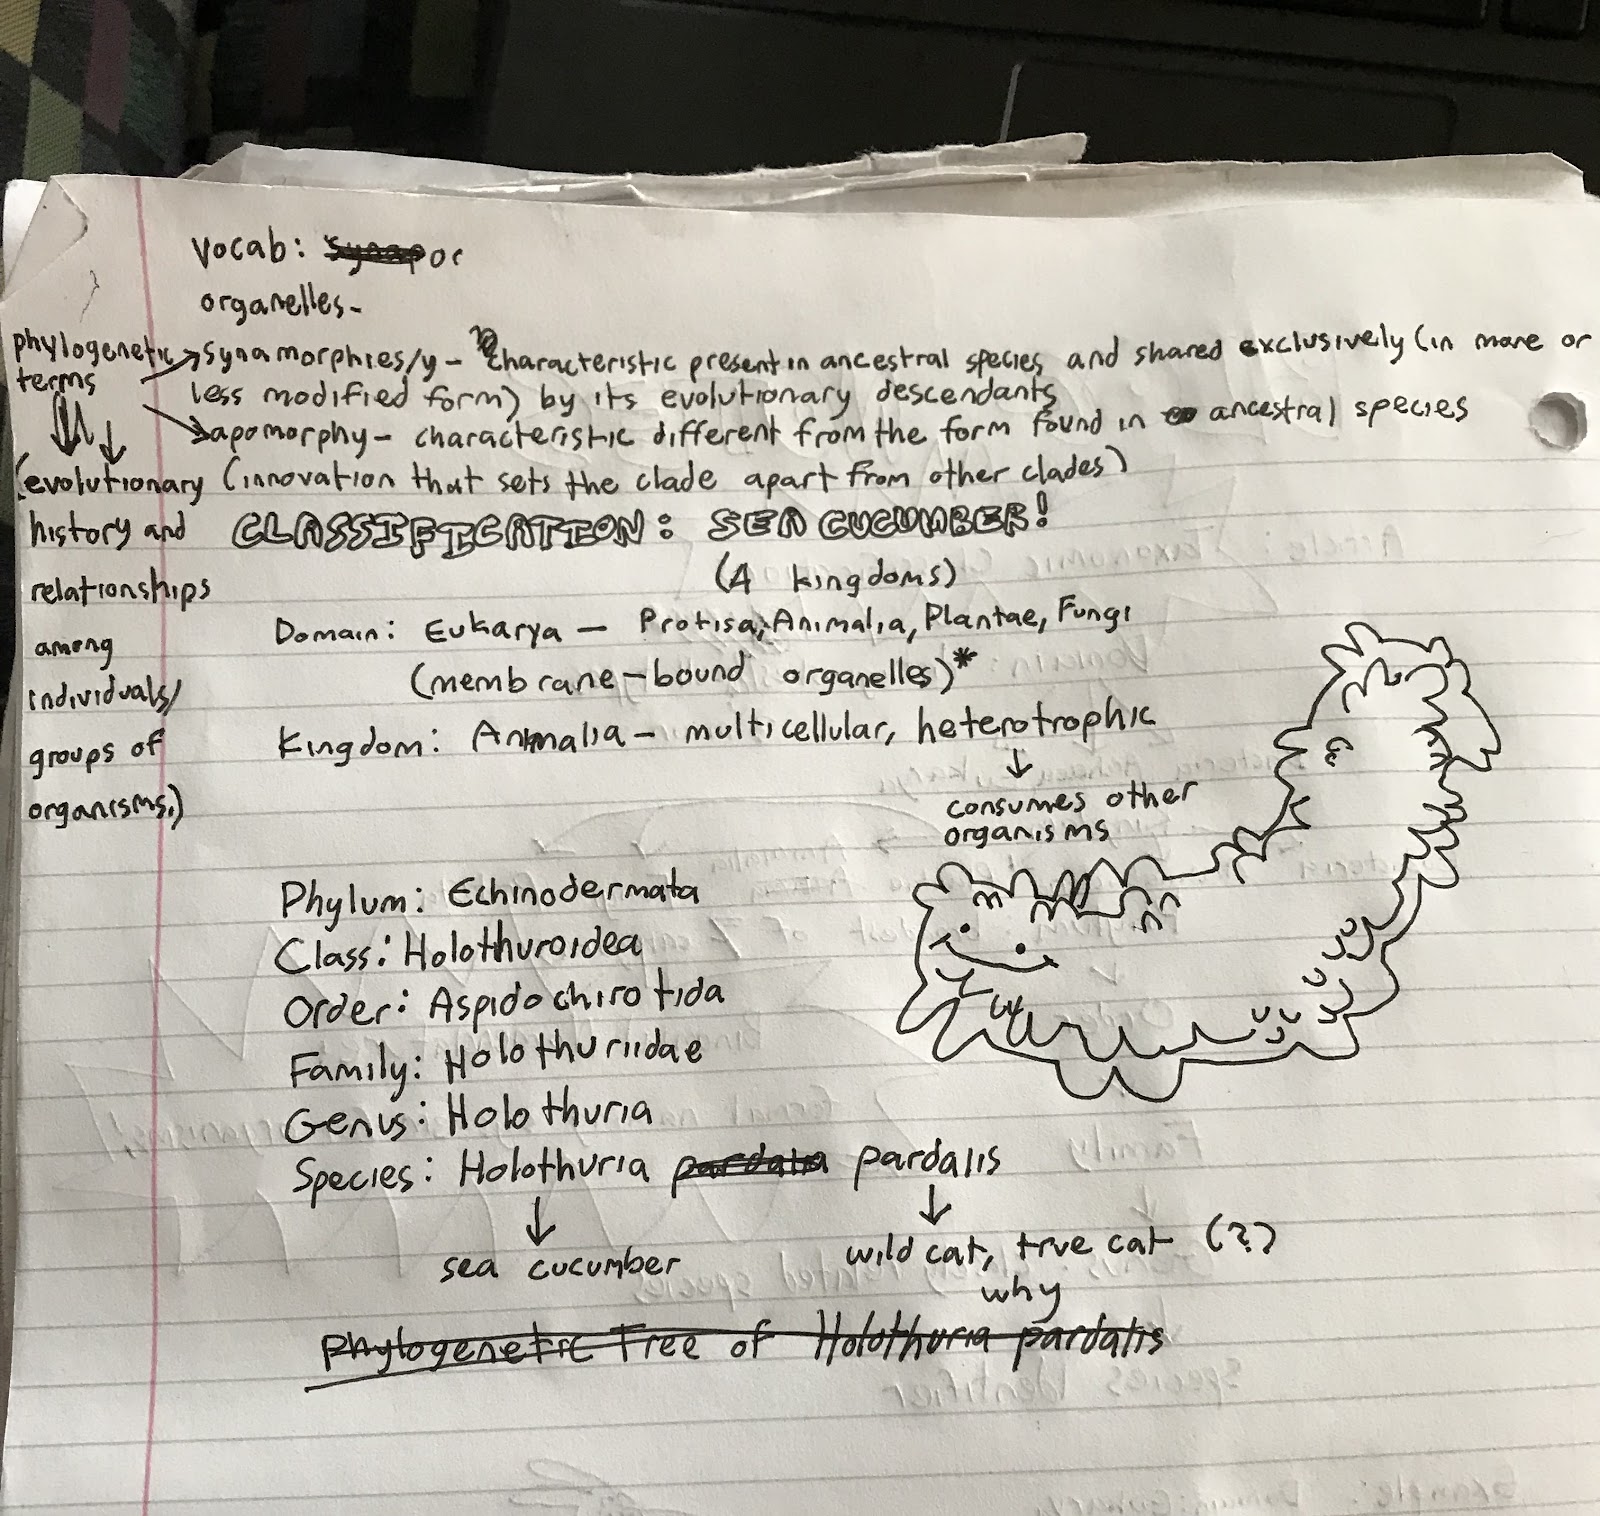 Vocab: Synap or
organelles-
phylogenetic
terms
(evolutionary
history and
relationships
among
individuals/
groups of
organisms.)
synamorphies/y - characteristic present in ancestral species and shared exclusively (in more or
less modified form) by its evolutionary descendants
apomorphy - characteristic different from the form found in ancestral species
(innovation that sets the clade apart from other clades)
CLASSIFICATION: SEA CUCUMBER!
(4 kingdoms)
Domain: Eukarya - Protisa, Animalia, Plantae, Fungi
(membrane-bound organelles)*
Kingdom: Animalia - multicellular, heterotrophic
consumes other
organisms
Phylum: Echinodermata
Class: Holothuroidea
Order: Aspidochirotida
Family: Holothuriidae
Genus: Holothuria
Species: Holothuria pardalia pardalis
sea cucumber
wild cat, true cat (?)
why
Phylogenetic Tree of Holothuria pardalis
species identifier
Family